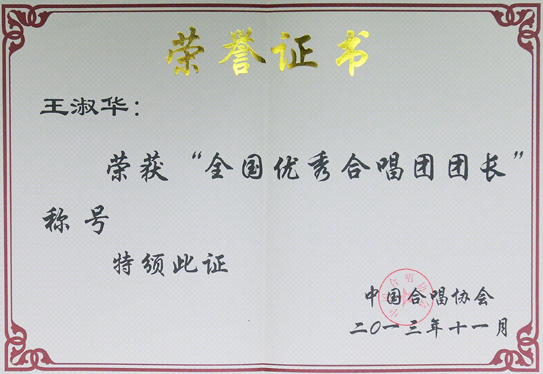 荣誉证书
王淑华：
荣获“全国优秀合唱团团长”
称号
特颁此证
中国合唱协会
二〇一三年十一月